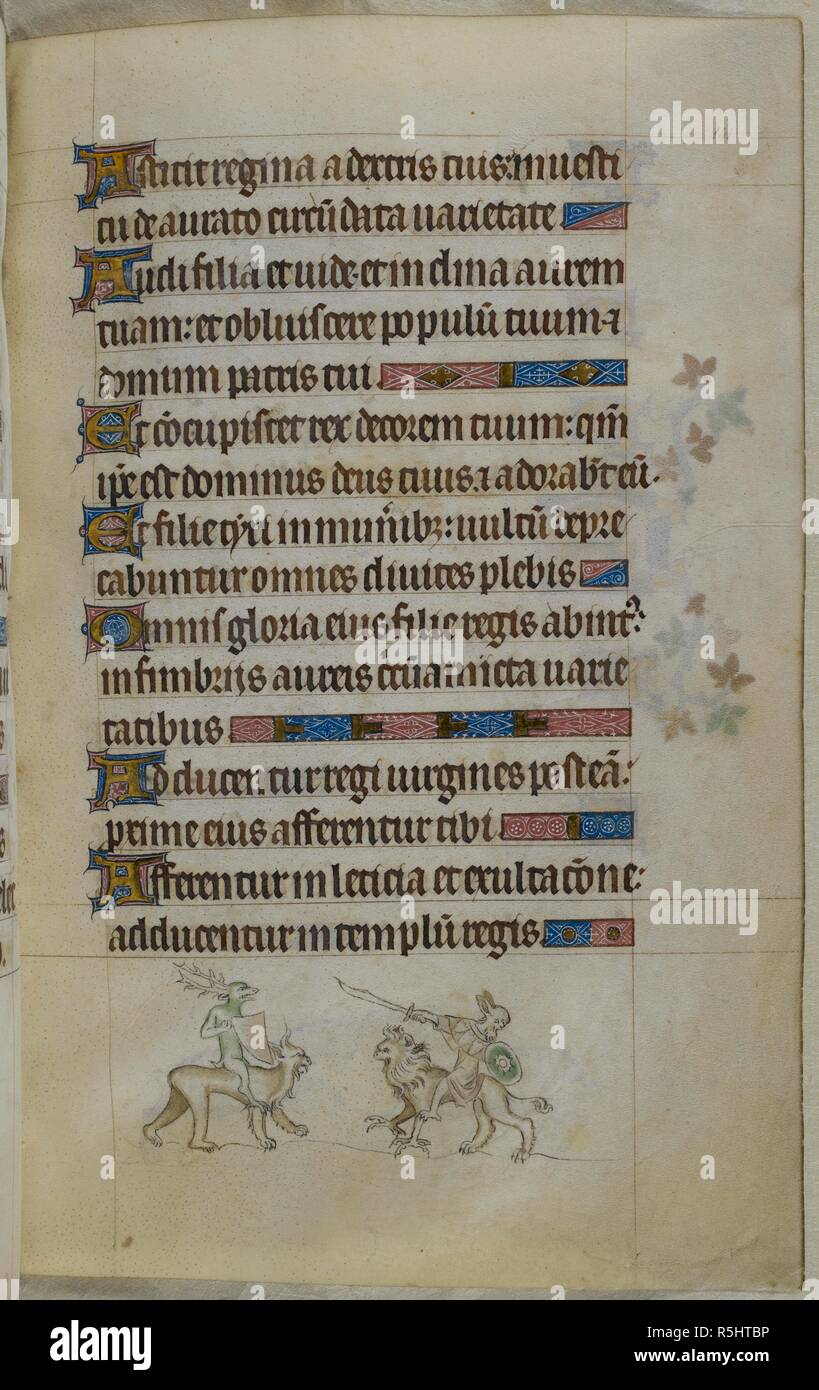 Astitit regina a dextris tuis: in uesti
tu de aurato circũdata uarietate
Audi filia et uide et inclina aurem
tuam: et obliuiscere populũ tuum ⁊
domum patris tui
Et cõcupiscet rex decorem tuum: qm̃
ip̃e est dominus deus tuus. ⁊ adorab̃t eũ.
Et filie tyri in munĩbꝫ: uultũ depre
cabuntur omnes diuites plebis
Omnis gloria eius filie regis ab int᷒:
in fimbrijs aureis circũamicta uarie
tatibus
Adducentur regi uirgines post eã:
prxime eius afferentur tibi
Afferentur in leticia et exultacõne:
adducentur in templũ regis
alamy
alamy
Image ID: R5HTBP
www.alamy.com